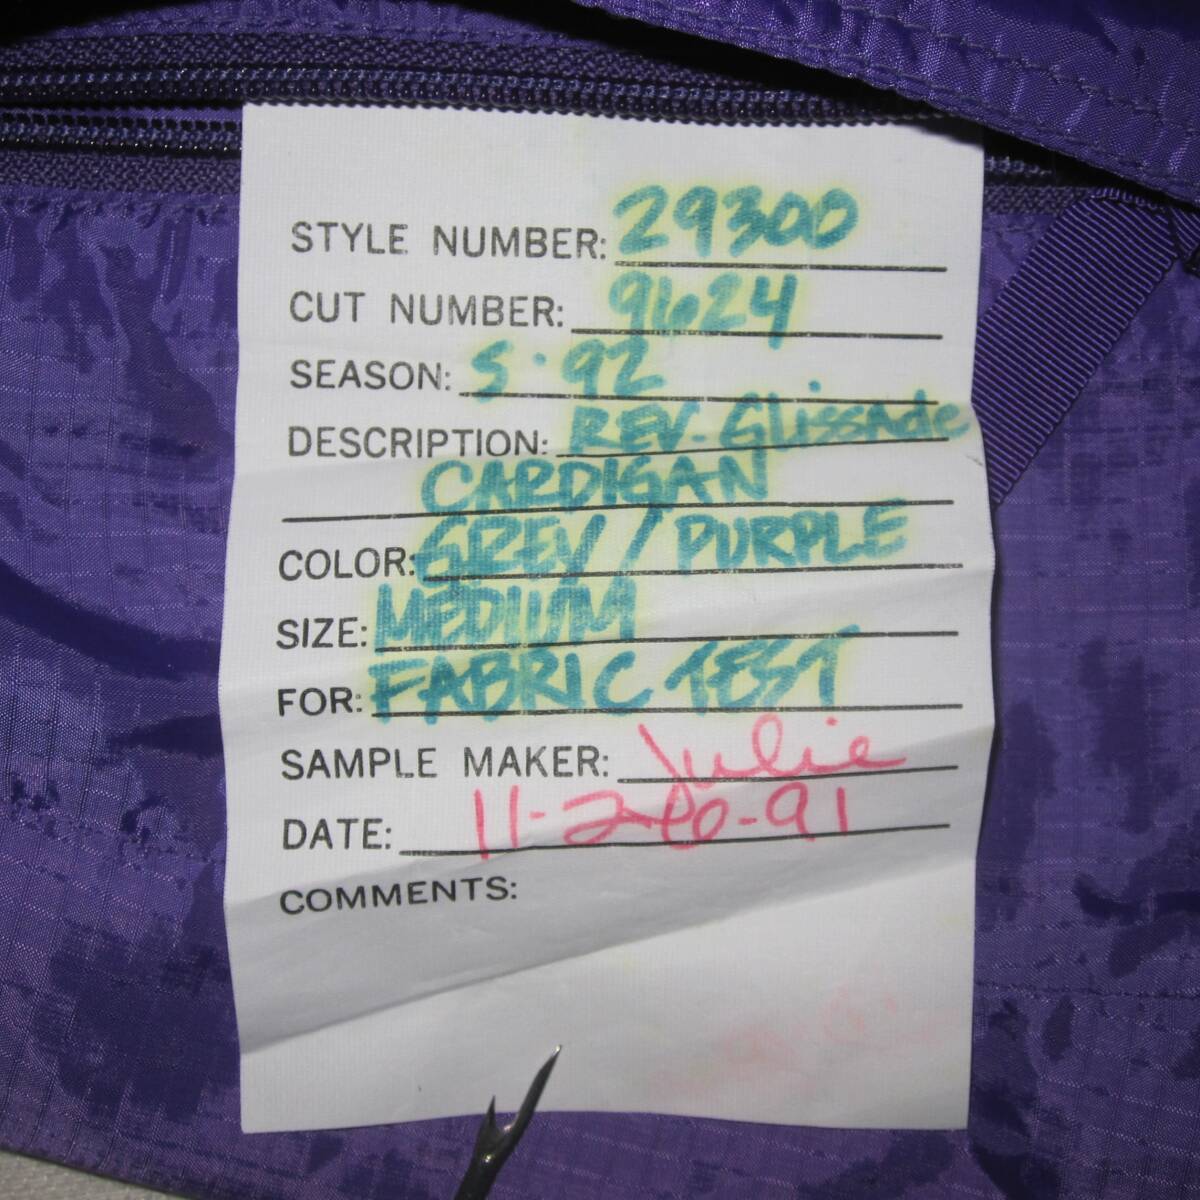 STYLE NUMBER: 29300
CUT NUMBER: 9624
SEASON: S·92
DESCRIPTION: REV. GLissAde
CARDIGAN
COLOR: GREY / PURPLE
SIZE: MEDIUM
FOR: FABRIC TEST
SAMPLE MAKER: Julie
DATE: 11-26-91
COMMENTS: